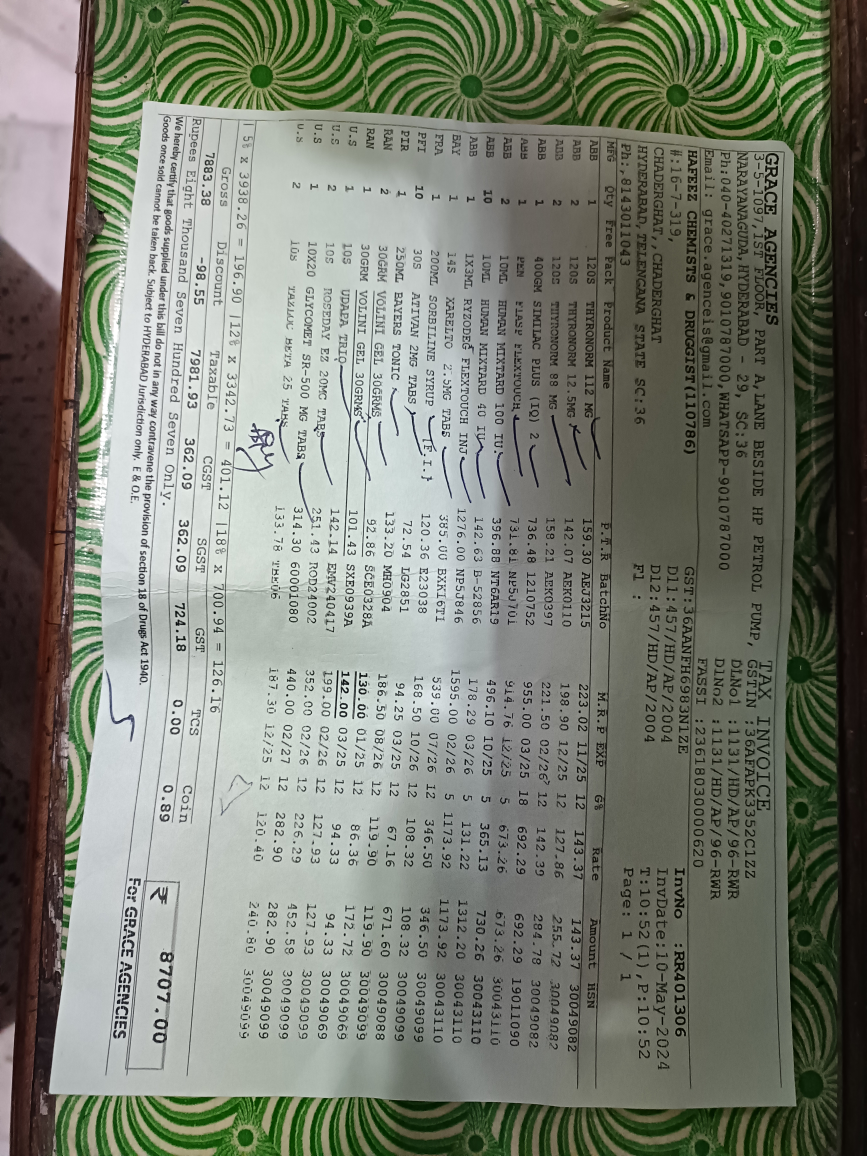 GRACE AGENCIES TAX INVOICE
3-5-1097,1ST FLOOR, PART A,LANE BESIDE HP PETROL PUMP, GSTIN :36AFAPK3352C1ZZ
NARAYANAGUDA,HYDERABAD - 29, SC:36 DLNo1 :1131/HD/AP/96-RWR
Ph:040-40271319,9010787000,WHATSAPP-9010787000 DLNo2 :1131/HD/AP/96-RWR
Email: grace.agenceis@gmail.com FASSI :23618030000620
HAFEEZ CHEMISTS & DRUGGIST(110786) GST:36AANFH6983N1ZE InvNo :RR401306
#:16-7-319, D11:457/HD/AP/2004 InvDate:10-May-2024
CHADERGHAT,,CHADERGHAT D12:457/HD/AP/2004 T:10:52(1),P:10:52
HYDERABAD,TELENGANA STATE SC:36 Fl : Page: 1 / 1
Ph:,8143011043
MFG Qty Free Pack Product Name P.T.R BatchNo M.R.P EXP G% Rate Amount HSN
ABB 1 120S THYRONORM 112 MG 159.30 AEJ3215 223.02 11/25 12 143.37 143.37 30049082
ABB 2 120S THYRONORM 12.5MG 142.07 AEK0110 198.90 12/25 12 127.86 255.72 30049082
ABB 2 120S THYRONORM 88 MG 158.21 AEK0397 221.50 02/26 12 142.39 284.78 30049082
ABB 1 400GM SIMILAC PLUS (IQ) 2 736.48 1210752 955.00 03/25 18 692.29 692.29 19011090
ABB 1 PEN FIASP FLEXTOUCH 731.81 NP5J701 914.76 12/25 5 673.26 673.26 30043110
ABB 2 10ML HUMAN MIXTARD 100 IU 396.88 NT6AR19 496.10 10/25 5 365.13 730.26 30043110
ABB 10 10ML HUMAN MIXTARD 40 IU 142.63 B-52856 178.29 03/26 5 131.22 1312.20 30043110
ABB 1 1X3ML RYZODEG FLEXTOUCH INJ 1276.00 NP5J846 1595.00 02/26 5 1173.92 1173.92 30043110
BAY 1 14S XARELTO 2.5MG TABS 385.00 BXKI6T1 539.00 07/26 12 346.50 346.50 30049099
FRA 1 200ML SORBILINE SYRUP (F.I.) 120.36 E23038 168.50 10/26 12 108.32 108.32 30049099
PFI 10 30S ATIVAN 2MG TABS 72.54 LG2851 94.25 03/25 12 67.16 671.60 30049099
PIR 1 250ML BAYERS TONIC 133.20 MH0904 186.50 08/26 12 119.90 119.90 30049088
RAN 2 30GRM VOLINI GEL 30GRMS 92.86 SCE0328A 130.00 01/25 12 86.36 172.72 30049099
RAN 1 30GRM VOLINI GEL 30GRMS 101.43 SXE0939A 142.00 03/25 12 94.33 94.33 30049069
U.S 1 10S UDAPA TRIO 142.14 EMV240417 199.00 02/26 12 127.93 127.93 30049099
U.S 2 10S ROSEDAY EZ 20MG TABS 251.43 ROD24002 352.00 02/26 12 226.29 452.58 30049099
U.S 1 10X20 GLYCOMET SR-500 MG TABS 314.30 60001080 440.00 02/27 12 282.90 282.90 30049099
U.S 2 10S BETA 25 TABS 133.78 187.30 12/25 12 120.40 240.80 30049099
5% x 3938.26 = 196.90 |12% x 3342.73 = 401.12 |18% x 700.94 = 126.16
Gross Discount Taxable CGST SGST GST TCS Coin
7883.38 -98.55 7981.93 362.09 362.09 724.18 0.00 0.89 ₹ 8707.00
Rupees Eight Thousand Seven Hundred Seven Only.
We hereby certify that goods supplied under this bill do not in any way contravene the provision of section 18 of Drugs Act 1940.
Goods once sold cannot be taken back. Subject to HYDERABAD Jurisdiction only. E & O.E.
For GRACE AGENCIES